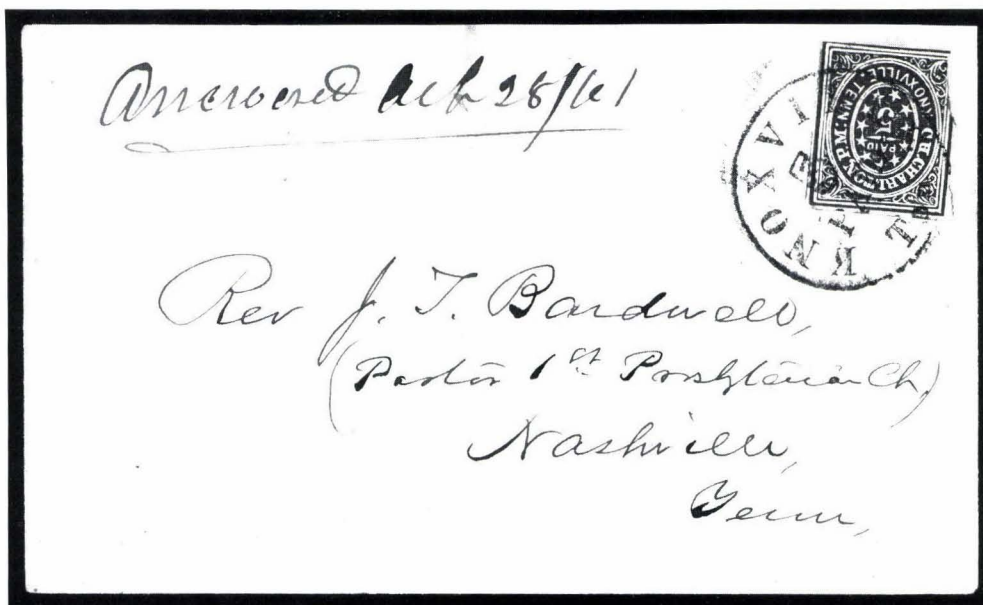 Answered Oct 28/61
KNOXVI
PAID
C.H. CHARLTON P.M. KNOXVILLE, TENN.
PAID
5
Rev J. T. Bardwell,
(Pastor 1st Presbyterian Ch.)
Nashville,
Tenn,